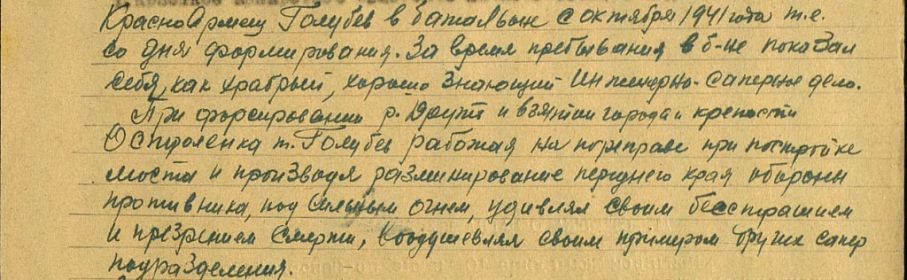 Красноармеец Голубев в батальоне с октября 1941 года т.е.
со дня формирования. За время пребывания в б-не показал
себя, как храбрый, хорошо знающий инженерно-саперное дело.
При форсировании р. Друть и взятии города и крепости
Остроленка т. Голубев работая на переправе при постройке
моста и производя разминирование переднего края обороны
противника, под сильным огнем, удивлял своим бесстрашием
и презрением смерти, воодушевляя своим примером других сапер
подразделения.